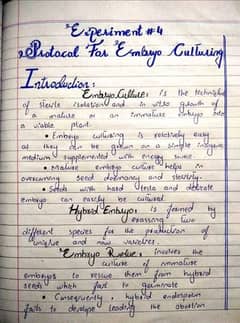 Experiment #4
Protocol For Embryo Culturing
Introduction:
Embryo Culture: is the technique
of sterile isolation and in vitro growth of
a mature or an immature embryo into
a viable plant.
• Embryo culturing is relatively easy
as they can be grown on a simple inorganic
medium supplemented with energy source
• Mature embryo culture helps in
overcoming seed dormancy and sterility.
• Seeds with hard testa and delicate
embryo can easily be cultured
Hybrid Embryo: is formed by
crossing two
different species for the production of
unique and new varieties.
Embryo Rescue: involves the
culture of immature
embryos to rescue them from hybrid
seeds which fail to germinate
• Consequently, hybrid endosperm
fails to develope leading the abortion